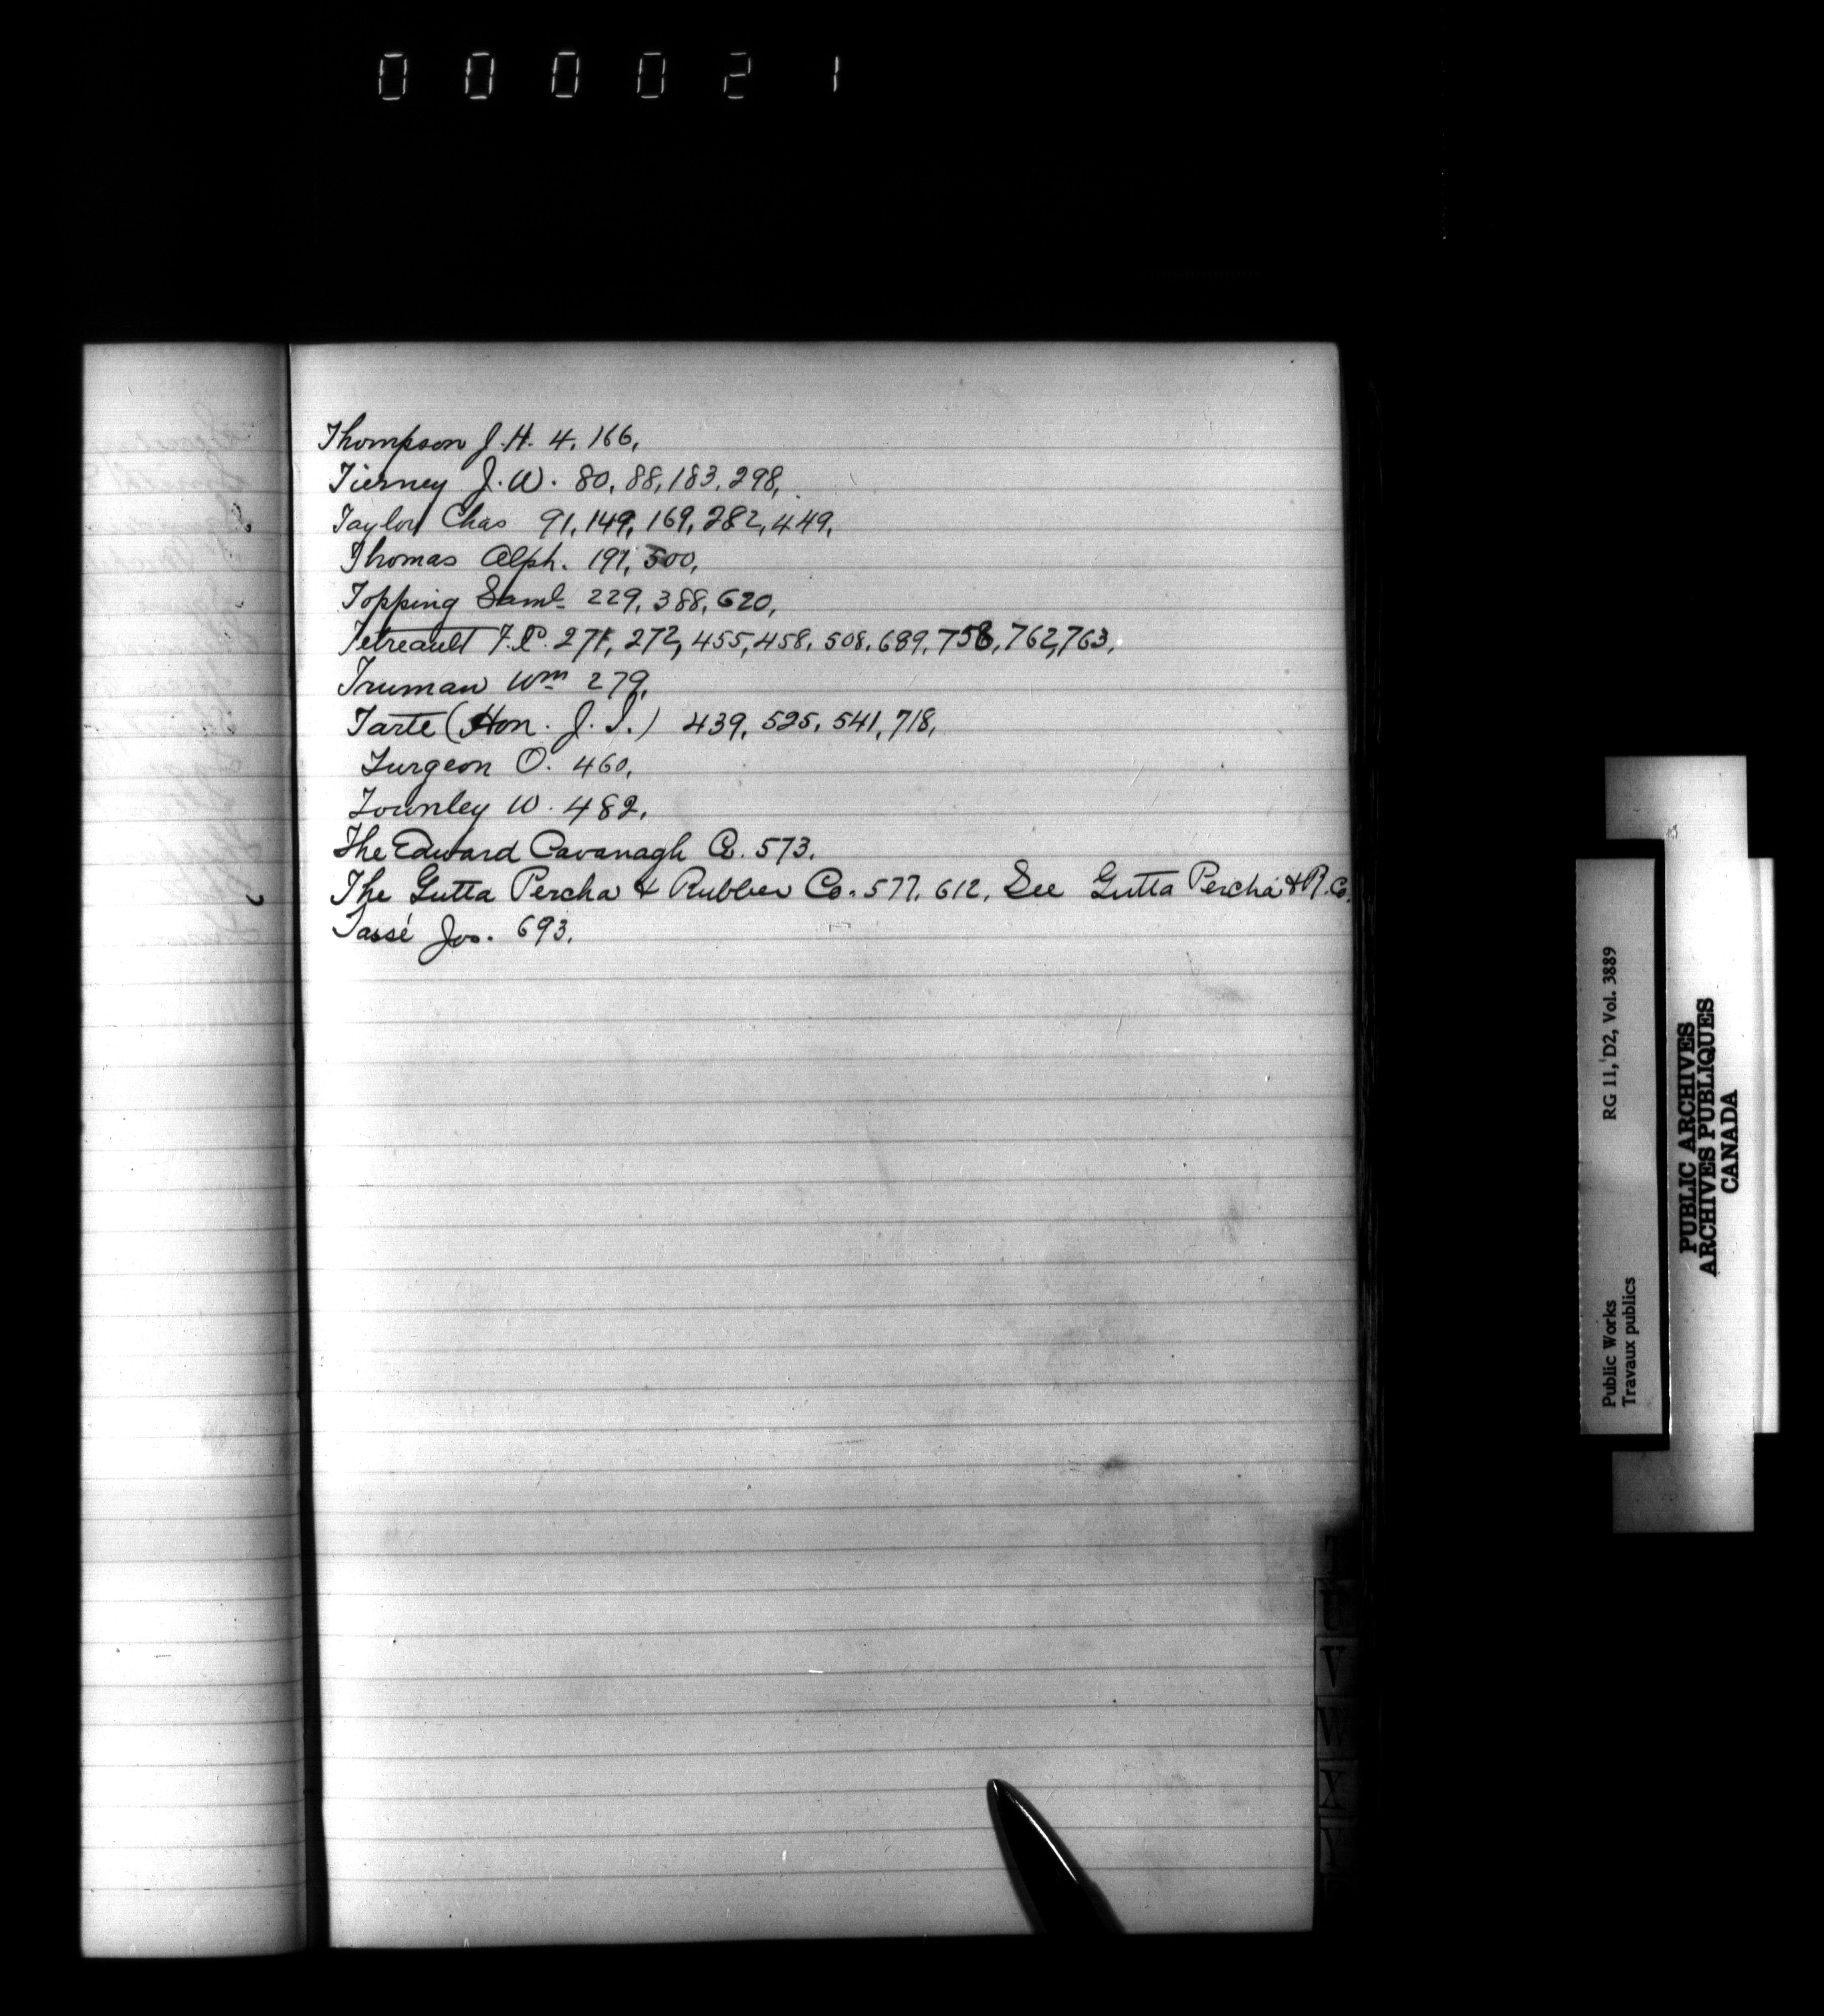 000021
Thompson J. H. 4, 166,
Tierney J. W. 80, 88, 183, 298,
Taylor Chas 91, 149, 169, 282, 449,
Thomas Alph. 191, 500,
Topping Saml. 229, 388, 620,
Tetreault F. P. 271, 272, 455, 458, 508, 689, 758, 762, 763,
Truman Wm 279,
Tarte (Hon. J. I.) 439, 525, 541, 718,
Turgeon O. 460,
Townley W. 482,
The Edward Cavanagh Co. 573.
The Gutta Percha & Rubber Co. 577, 612, See Gutta Percha & R. Co.
Tassé Jos. 693,
T
U
V
W
X
Y
Public Works RG 11, D2, Vol. 3889
Travaux publics
PUBLIC ARCHIVES
ARCHIVES PUBLIQUES
CANADA